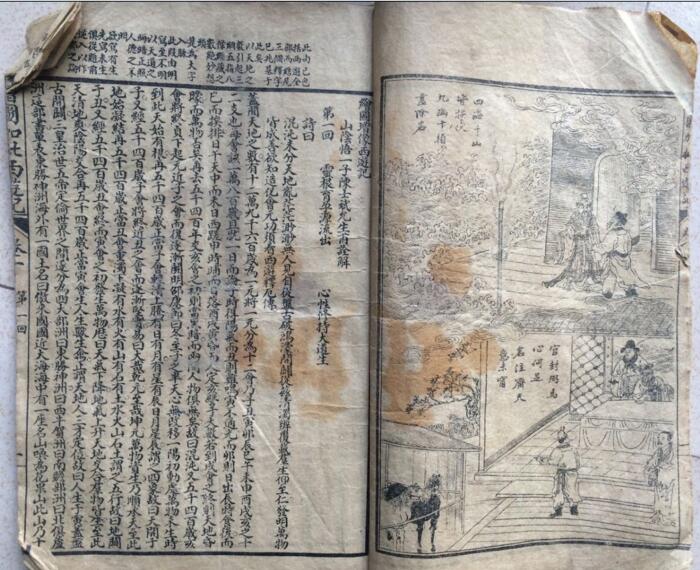 四海千山
皆拱伏
九幽十類
盡除名
官封弼馬
心何足
名注齊天
意未寧
繪圖增像西遊記
山陰悟一子陳士斌允生甫詮解
第一回 靈根育孕源流出 心性修持大道生
詩曰
混沌未分天地亂茫茫渺渺無人見自從盤古破鴻濛開闢從茲清濁辨覆載羣生仰至仁發明萬物
皆成善欲知造化會元功須看西遊釋厄傳
蓋聞天地之數有十二萬九千六百歲為一元將一元分為十二會乃子丑寅卯辰巳午未申酉戌亥之十
二支也每會該一萬八百歲且就一日而論子時得陽氣而丑則雞鳴寅不通光而卯則日出辰時食後而
巳而挨排日午天中而未日西蹉申時晡而日落酉戌黃昏而人定亥譬于大數若到戌會之終則天地昏
曚而萬物否矣再去五千四百歲交亥會之初則當黑暗而兩間人物俱無矣故曰混沌又五千四百歲亥
會將終貞下起元近子之會而復逐漸開明邵康節曰冬至子之半天心無改移一陽初動處萬物未生時
到此天始有根再五千四百歲正當子會輕清上騰有日有月有星有辰日月星辰謂之四象故曰天開于
子又經五千四百歲子會將終近丑之會而逐漸堅實易曰大哉乾元至哉坤元萬物資生乃順承天至此
地始凝結再五千四百歲正當丑會重濁下凝有水有火有山有石有土水火山石土謂之五行故曰地闢
于丑又經五千四百歲丑會終而寅會之初發生萬物歷曰天氣下降地氣上升天地交合羣物皆生至此
天清地爽陰陽交合再五千四百歲正當寅會生人生獸生禽正謂天地人三才定位故曰人生于寅感盤
古開闢三皇治世五帝定倫世界之間遂分為四大部洲曰東勝神洲曰西牛賀洲曰南贍部洲曰北俱蘆
洲這部書單表東勝神洲海外有一國土名曰傲來國國近大海海中有一座名山喚為花果山此山乃十
西遊記 卷一 第一回